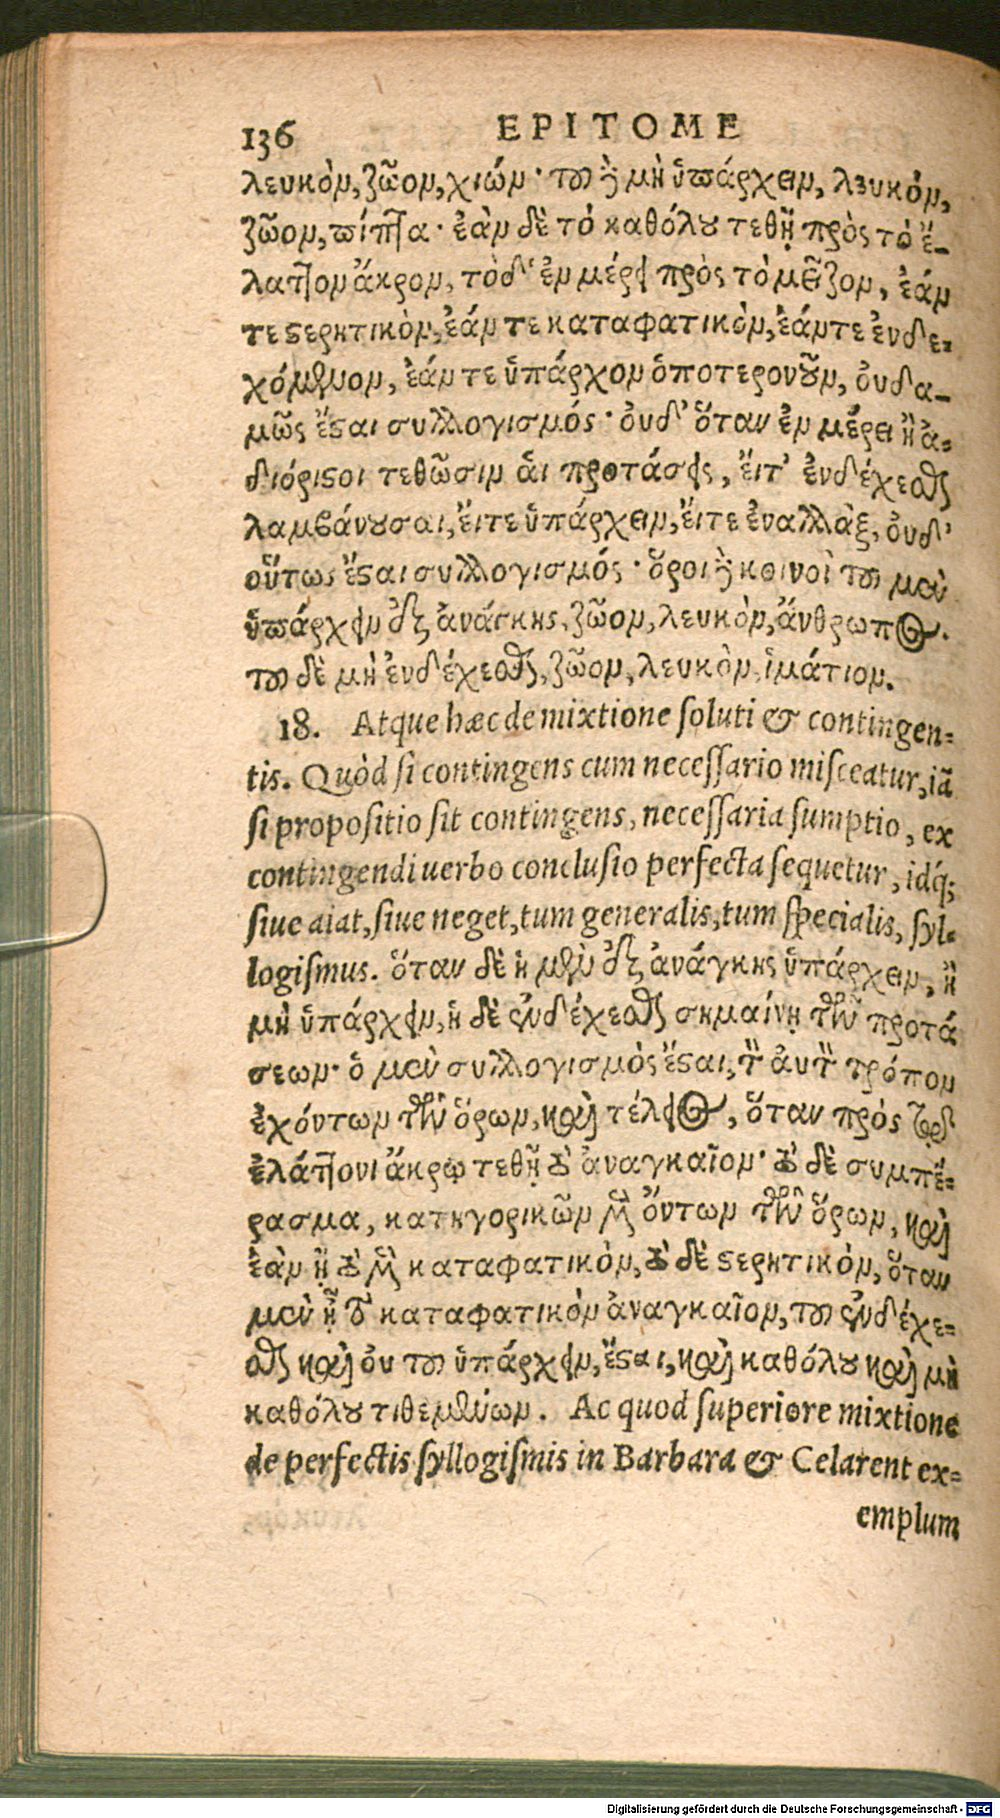 136 EPITOME
λευκὸν, ζῶον, χιών· τοῦ δὲ μὴ ὑπάρχειν, λευκόν,
ζῶον, πίττα· ἐὰν δὲ τὸ καθόλου τεθῇ πρὸς τὸ ἔ-
λαττον ἄκρον, τὸ δ' ἐν μέρει πρὸς τὸ μεῖζον, ἐάν
τε στερητικὸν, ἐάν τε καταφατικὸν, ἐάν τε ἐνδε-
χόμενον, ἐάν τε ὑπάρχον ὁποτερονοῦν, οὐδα-
μῶς ἔσται συλλογισμός· οὐδ' ὅταν ἐν μέρει ἢ ἀ-
διόριστοι τεθῶσιν αἱ προτάσεις, εἴτ' ἐνδέχεσθαι
λαμβάνουσαι, εἴτε ὑπάρχειν, εἴτε ἐναλλὰξ, οὐδ'
οὕτως ἔσται συλλογισμός· ὅροι δὲ κοινοὶ τοῦ μὲν
ὑπάρχειν ἐξ ἀνάγκης, ζῶον, λευκὸν, ἄνθρωπος.
τοῦ δὲ μὴ ἐνδέχεσθαι, ζῶον, λευκὸν, ἱμάτιον.
18. Atque hæc de mixtione soluti & contingen-
tis. Quòd si contingens cum necessario misceatur, iã
si propositio sit contingens, necessaria sumptio, ex
contingendi uerbo conclusio perfecta sequetur, idq́;
siue aiat, siue neget, tum generalis, tum specialis, syl-
logismus. ὅταν δὲ ἡ μὲν ἐξ ἀνάγκης ὑπάρχειν, ἢ
μὴ ὑπάρχειν, ἡ δὲ ἐνδέχεσθαι σημαίνῃ τῶν προτά
σεων· ὁ μὲν συλλογισμὸς ἔσται, τὸν αὐτὸν τρόπον
ἐχόντων τῶν ὅρων, καὶ τέλειος, ὅταν πρὸς τῷ
ἐλάττονι ἄκρῳ τεθῇ τὸ ἀναγκαῖον· τὸ δὲ συμπέ-
ρασμα, κατηγορικῶν μὲν ὄντων τῶν ὅρων, καὶ
ἐὰν ᾖ τὸ μὲν καταφατικὸν, τὸ δὲ στερητικὸν, ὅταν
μὲν ᾖ τὸ καταφατικὸν ἀναγκαῖον, τοῦ ἐνδέχε-
σθαι καὶ οὐ τοῦ ὑπάρχειν, ἔσται, καὶ καθόλου καὶ μὴ
καθόλου τιθεμένων. Ac quod superiore mixtione
de perfectis syllogismis in Barbara & Celarent ex-
emplum
Digitalisierung gefördert durch die Deutsche Forschungsgemeinschaft - DFG